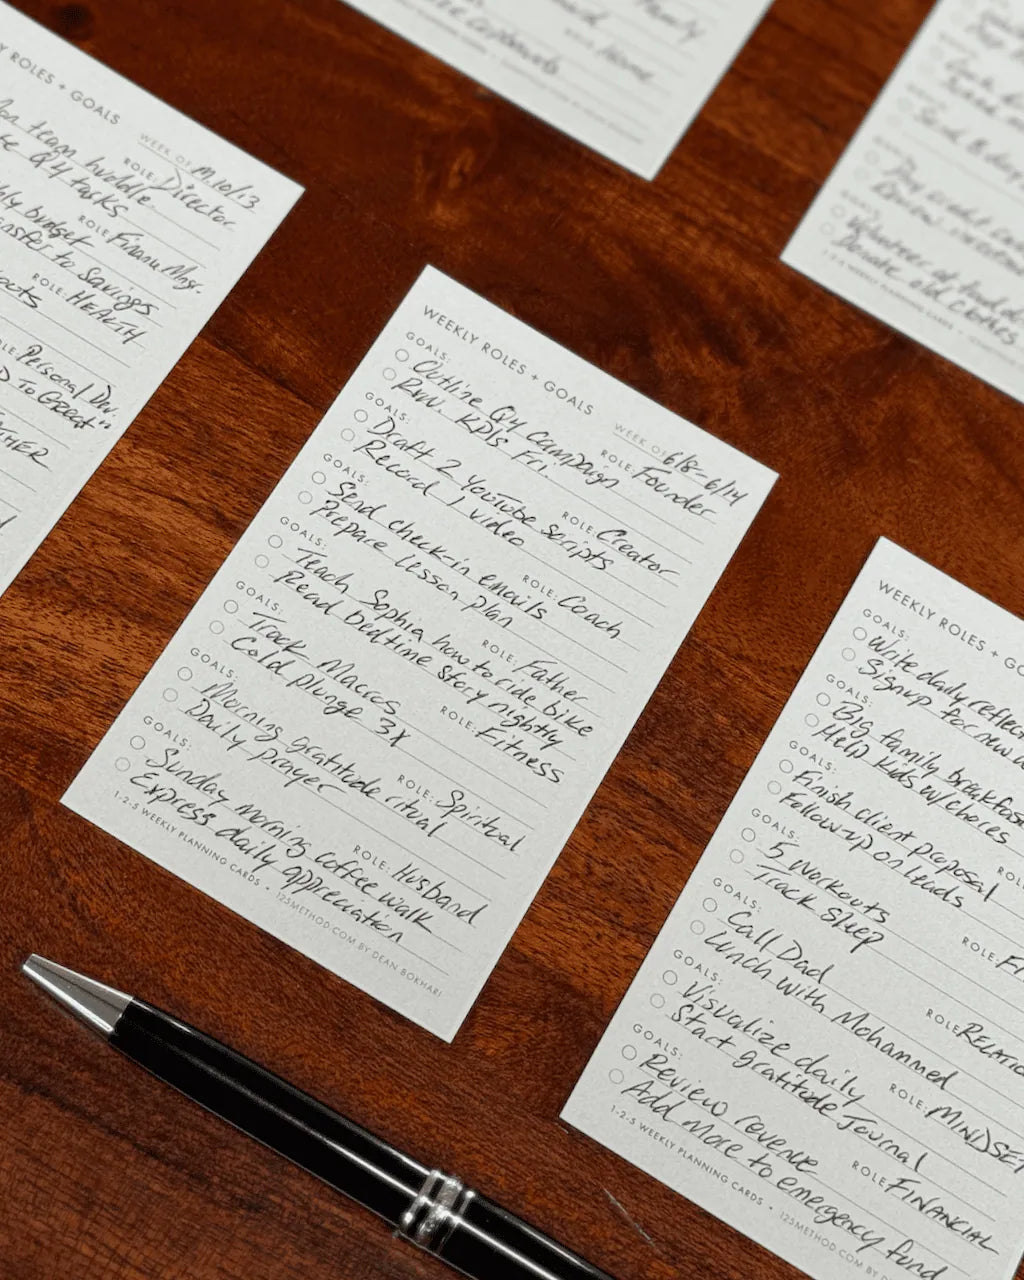 Family
Home
cupboards
Send 8 day
Volunteer at food
Donate old clothes
1-2-5 WEEKLY PLANNING CARDS
ROLES + GOALS
WEEK OF: M 10/13
ROLE: Director
team huddle
Q4 tasks
ROLE: Finance Mgr.
budget
to Savings
ROLE: HEALTH
Personal Dev.
To Great"
WEEKLY ROLES + GOALS
WEEK OF: 6/8-6/14
GOALS: ROLE: Founder
Outline Q4 Campaign
Rvw. KPIs Fri.
GOALS: ROLE: Creator
Draft 2 YouTube scripts
Record 1 video
GOALS: ROLE: Coach
Send check-in emails
Prepare lesson plan
GOALS: ROLE: Father
Teach Sophia how to ride bike
Read bedtime story nightly
GOALS: ROLE: Fitness
Track Macros
Cold plunge 3X
GOALS: ROLE: Spiritual
Morning gratitude ritual
Daily prayer
GOALS: ROLE: Husband
Sunday morning coffee walk
Express daily appreciation
1-2-5 WEEKLY PLANNING CARDS • 125METHOD.COM BY DEAN BOKHARI
WEEKLY ROLES + GO
GOALS:
Write daily reflec
Sign up for new
GOALS:
Big family breakfast
Help kids w/chores
GOALS: ROLE
Finish client proposal
Follow-up on leads
GOALS: ROLE: FI
5 Workouts
Track sleep
GOALS: ROLE: RELATIO
Call Dad
Lunch with Mohammed
GOALS: ROLE: MINDSET
Visualize daily
Start gratitude Journal
GOALS: ROLE: FINANCIAL
Review revenue
Add more to emergency fund
1-2-5 WEEKLY PLANNING CARDS • 125METHOD.COM BY